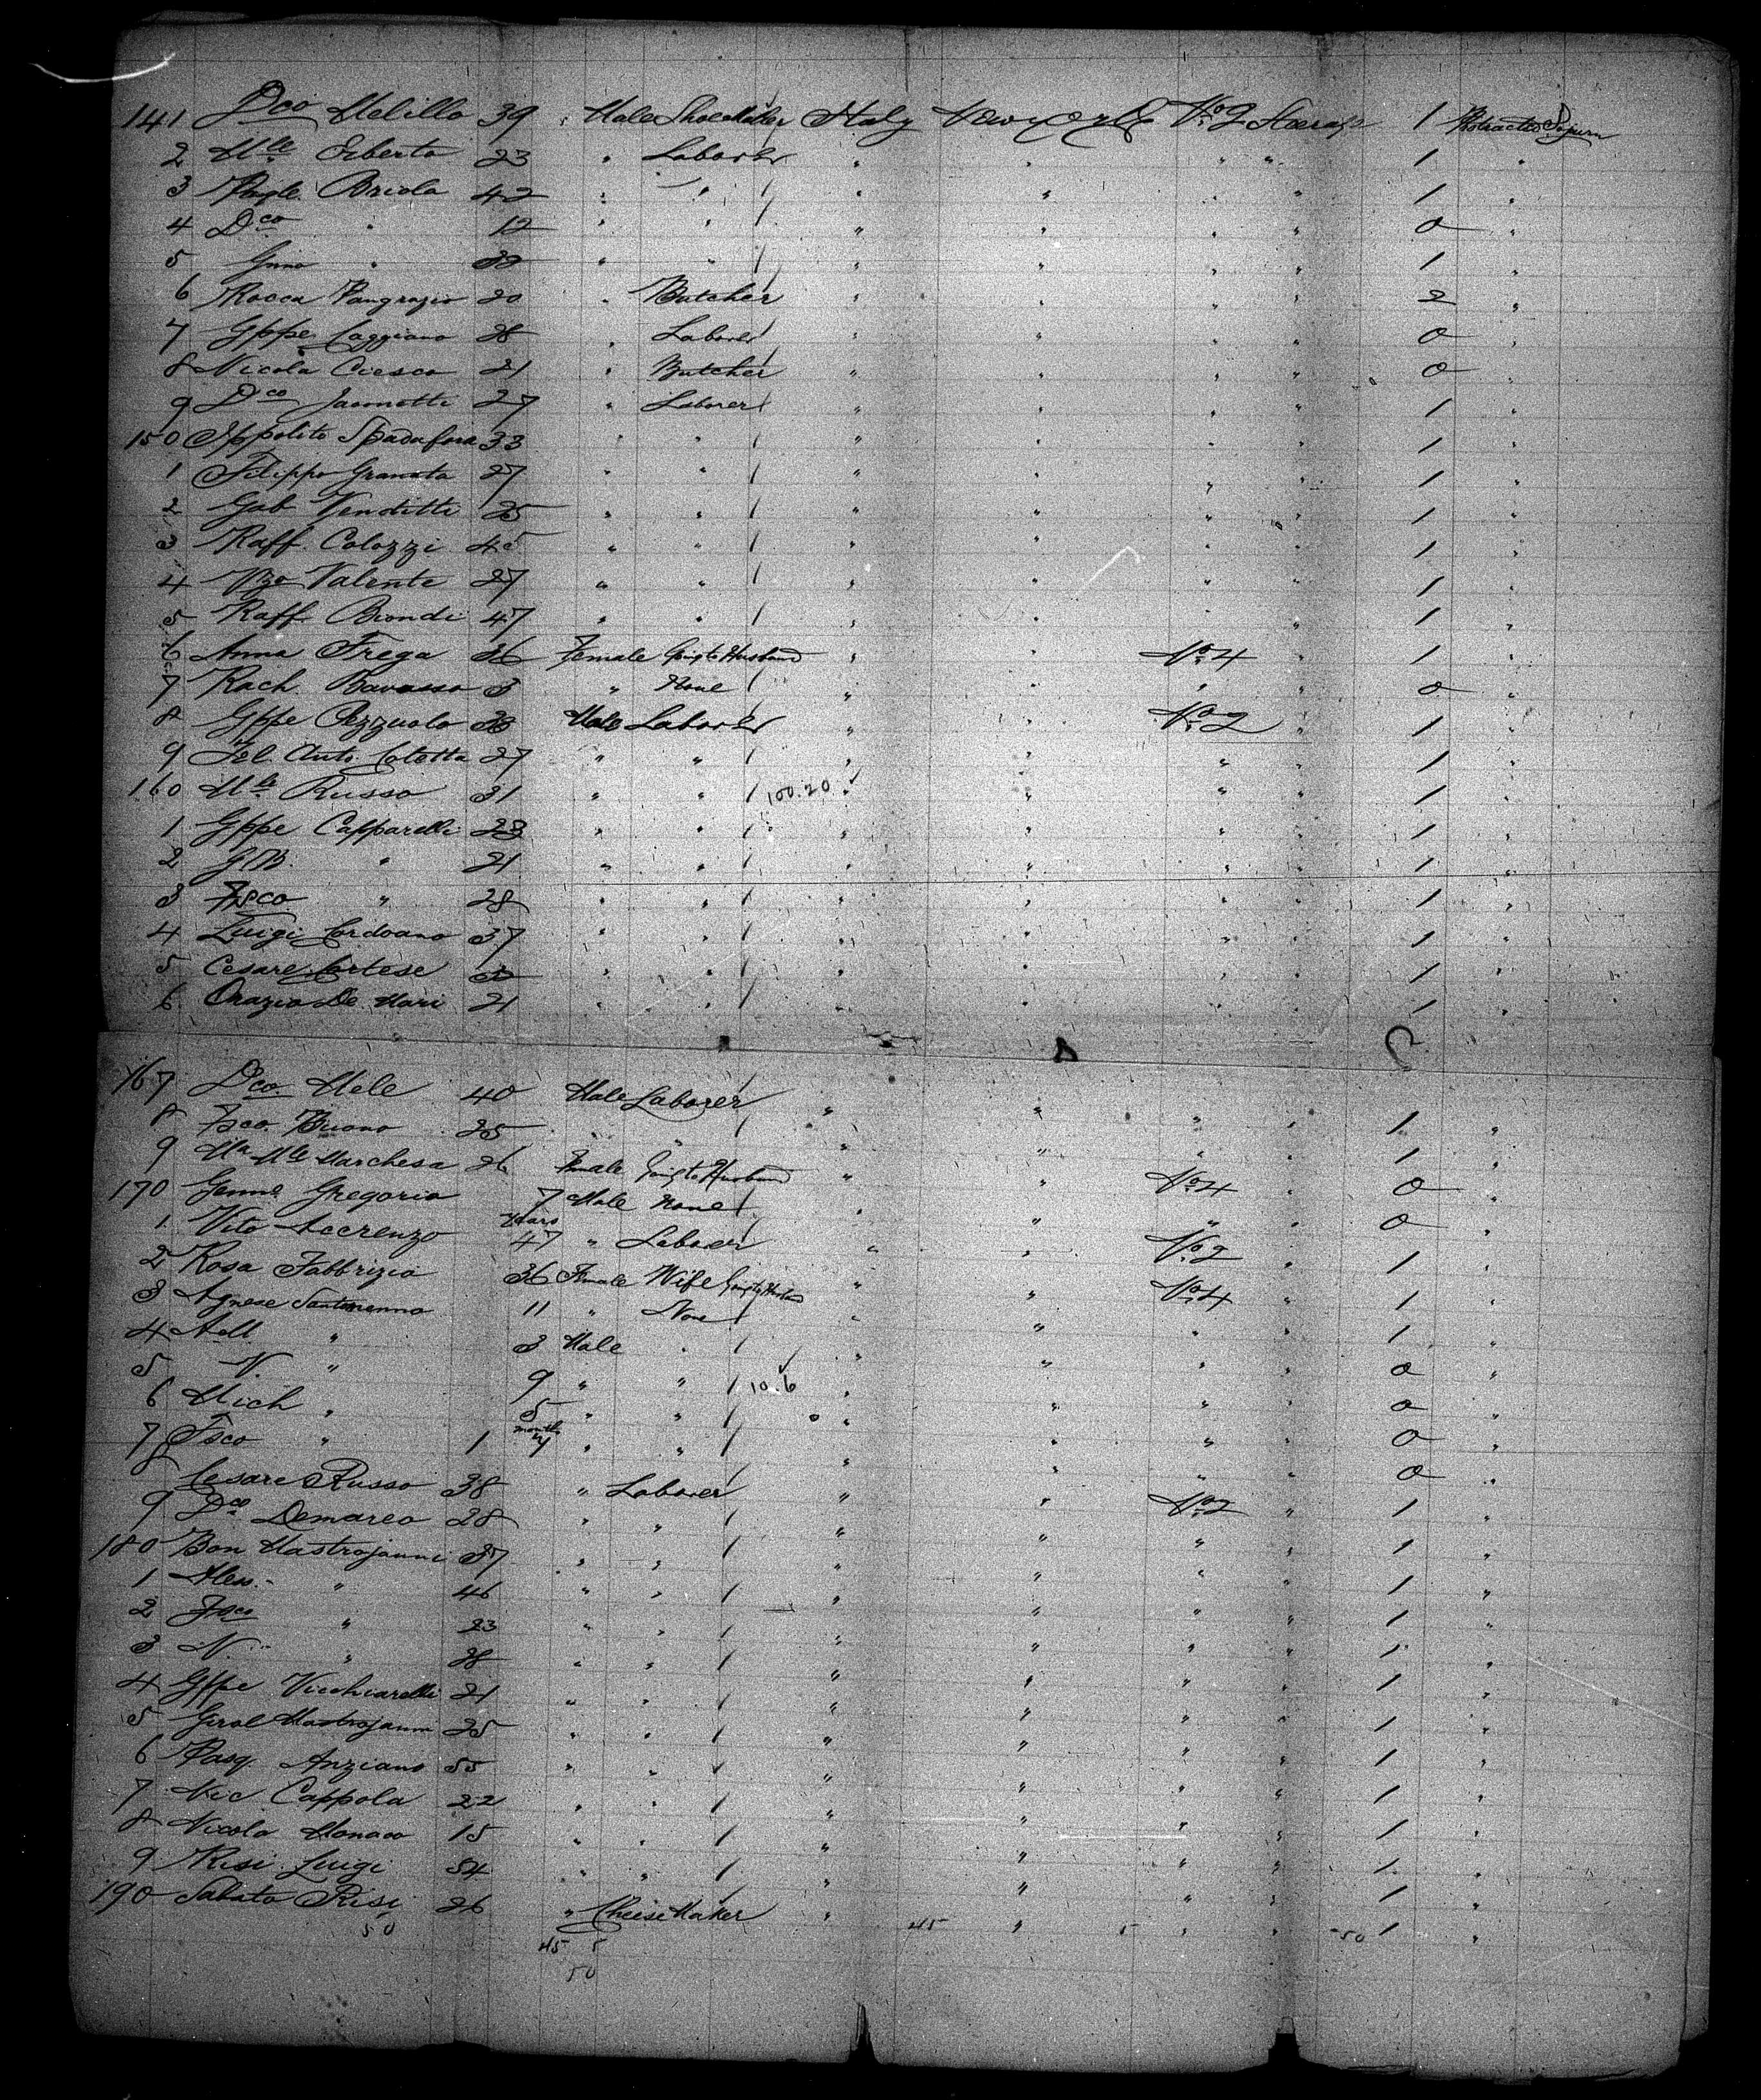 141 Dco Melillo 39 Male Shoe Maker Italy New York No 2 Steerage 1 Protracted Sojourn
2 Mle Ciberto 23 " Laborer " " " " 1 "
3 Briola 42 " " " " " 1 "
4 Dco " 12 " " " " " " 0 "
5 Gnno " " " " " " " 1 "
6 Rocca Pangrazio 20 " Butcher " " " " 2 "
7 Gppe Caggiano 28 " Laborer " " " " 0 "
8 Nicola Ciesco 21 " Butcher " " " " 0 "
9 Dco Iacometti 27 " Laborer " " " " 1 "
150 Ippolito Spadafora 33 " " " " " " 1 "
1 Filippo Granata 27 " " " " " " 1 "
2 Gab Venditti 25 " " " " " " 1 "
3 Raff. Colozzi 45 " " " " " " 1 "
4 Vzo Valente 27 " " " " " " 1 "
5 Raff. Biondi 47 " " " " " 1 "
6 Anna Frega 36 Female Going to Husband " " No 4 " 1 "
7 Rach. Bavasso 3 " None " " " " 0 "
8 Gppe Pezzuolo Male Laborer " " No 2 " 1 "
9 Fel. Anto. Colotta 27 " " " " " " 1 "
160 Mle Russo 31 " " 100.20 " " " " 1 "
1 Gppe Capparelli 23 " " " " " " 1 "
2 GB. " 21 " " " " " " 1 "
3 Fsco " 28 " " " " " " 1 "
4 Luigi Cordoano 37 " " " " " " 1 "
5 Cesare Cortese " " " " " " 1 "
6 Orazio De Mari 21 " " " " " " 1 "
167 Dco. Mele 40 Male Laborer " " " " 1 "
8 Fsco. Buono 25 " " " " " " 1 "
9 Ma Mle Marchesa 26 Female Going to Husband " " No 4 " 0 "
170 Genno Gregorio 7 years Male None " " " " 0 "
1 Vito Accrenzo 47 " Laborer " " No 2 " 1 "
2 Rosa Fabbrizio 36 Female Wife Going to Husband " " No 4 " 1 "
3 Agnese Santomenno 11 " None " " " " 1 "
4 " 3 Male " " " " " 0 "
5 V. " 9 " " 10.6 " " " " 0 "
6 Mich " 5 " " " " " " 0 "
7 Fsco " 1 months " " " " " " 0 "
8 Cesare Russo 38 " Laborer " " No 2 " 1 "
9 Dco Demarco 28 " " " " " " 1 "
180 Bon Mastrojanni 37 " " " " " " 1 "
1 Aless. " 46 " " " " " " 1 "
2 Fsco " 23 " " " " " " 1 "
3 N. " 28 " " " " " " 1 "
4 Gppe Vicchiarelli 21 " " " " " " 1 "
5 Gerol Mastrojanni 25 " " " " " " 1 "
6 Pasq. Anziano 55 " " " " " " 1 "
7 Nic Cappola 22 " " " " " " 1 "
8 Nicola Monaco 15 " " " " " " 1 "
9 Risi Luigi 54 " " " " " " 1 "
190 Sabato Risi 26 " Cheese Maker " 45 " 5 " " 50 1 "
50 45 5
50